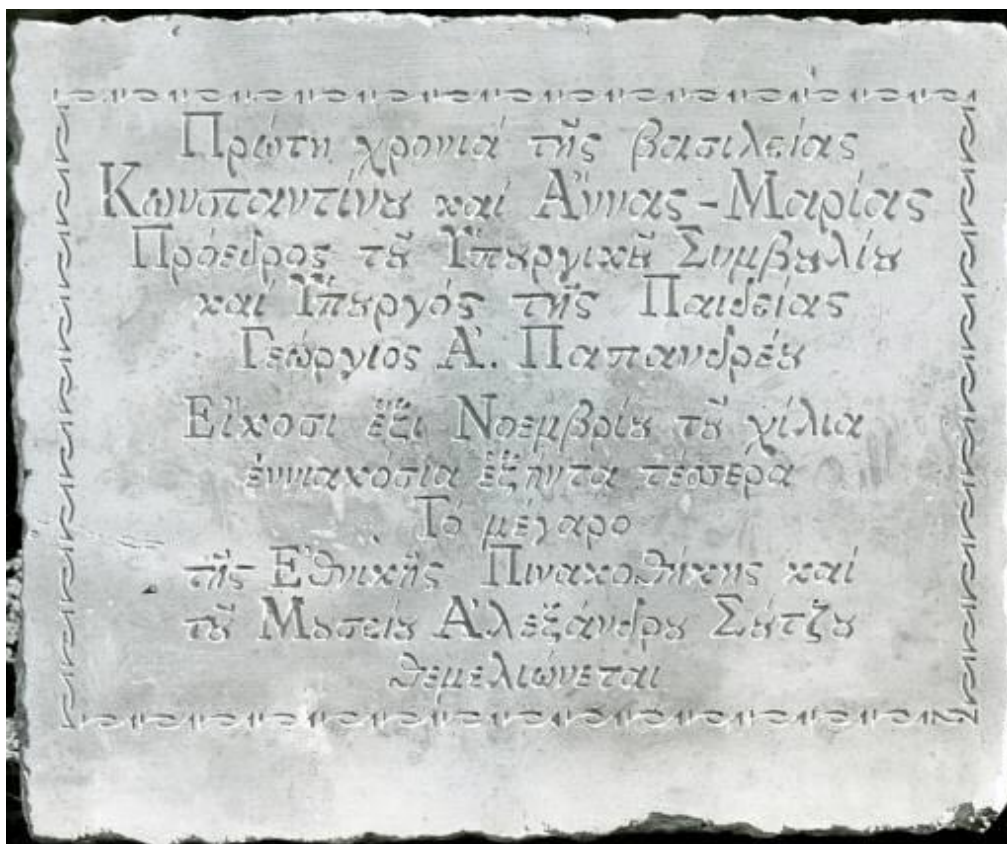 Πρώτη χρονιά τῆς βασιλείας
Κωνσταντίνȣ καί Ἄννας - Μαρίας
Πρόεδρος τȣ͂ Ὑπȣργικȣ͂ Συμβȣλίȣ
καί Ὑπȣργός τῆς Παιδείας
Γεώργιος Ἀ. Παπανδρέȣ
Εἴκοσι ἕξι Νοεμβρίȣ τȣ͂ χίλια
ἐννιακόσια ἑξῆντα τέσσερα
Τό μέγαρο
τῆς Ἐθνικῆς Πινακοθήκης καί
τȣ͂ Μȣσείȣ Ἀλεξάνδρȣ Σȣ́τζȣ
θεμελιώνεται